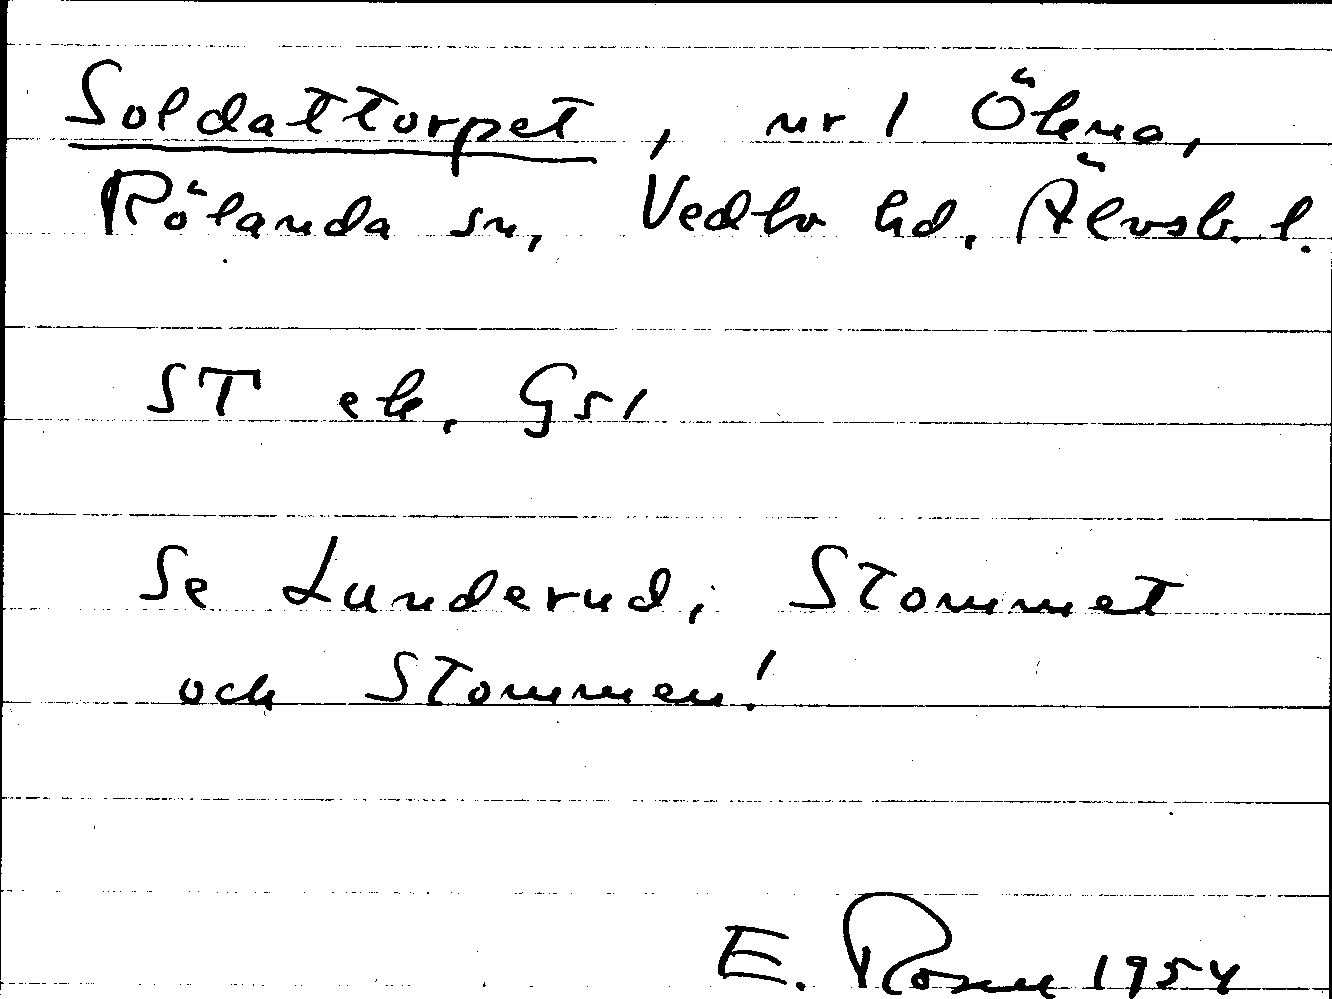 Soldattorpet, nr 1 Ökna,
Rölanda sn, Vedbo hd. Älvsb. l.
ST ek. Gs1
Se Lunderud, Stommet
och Stommen!
E. Rosen 1954